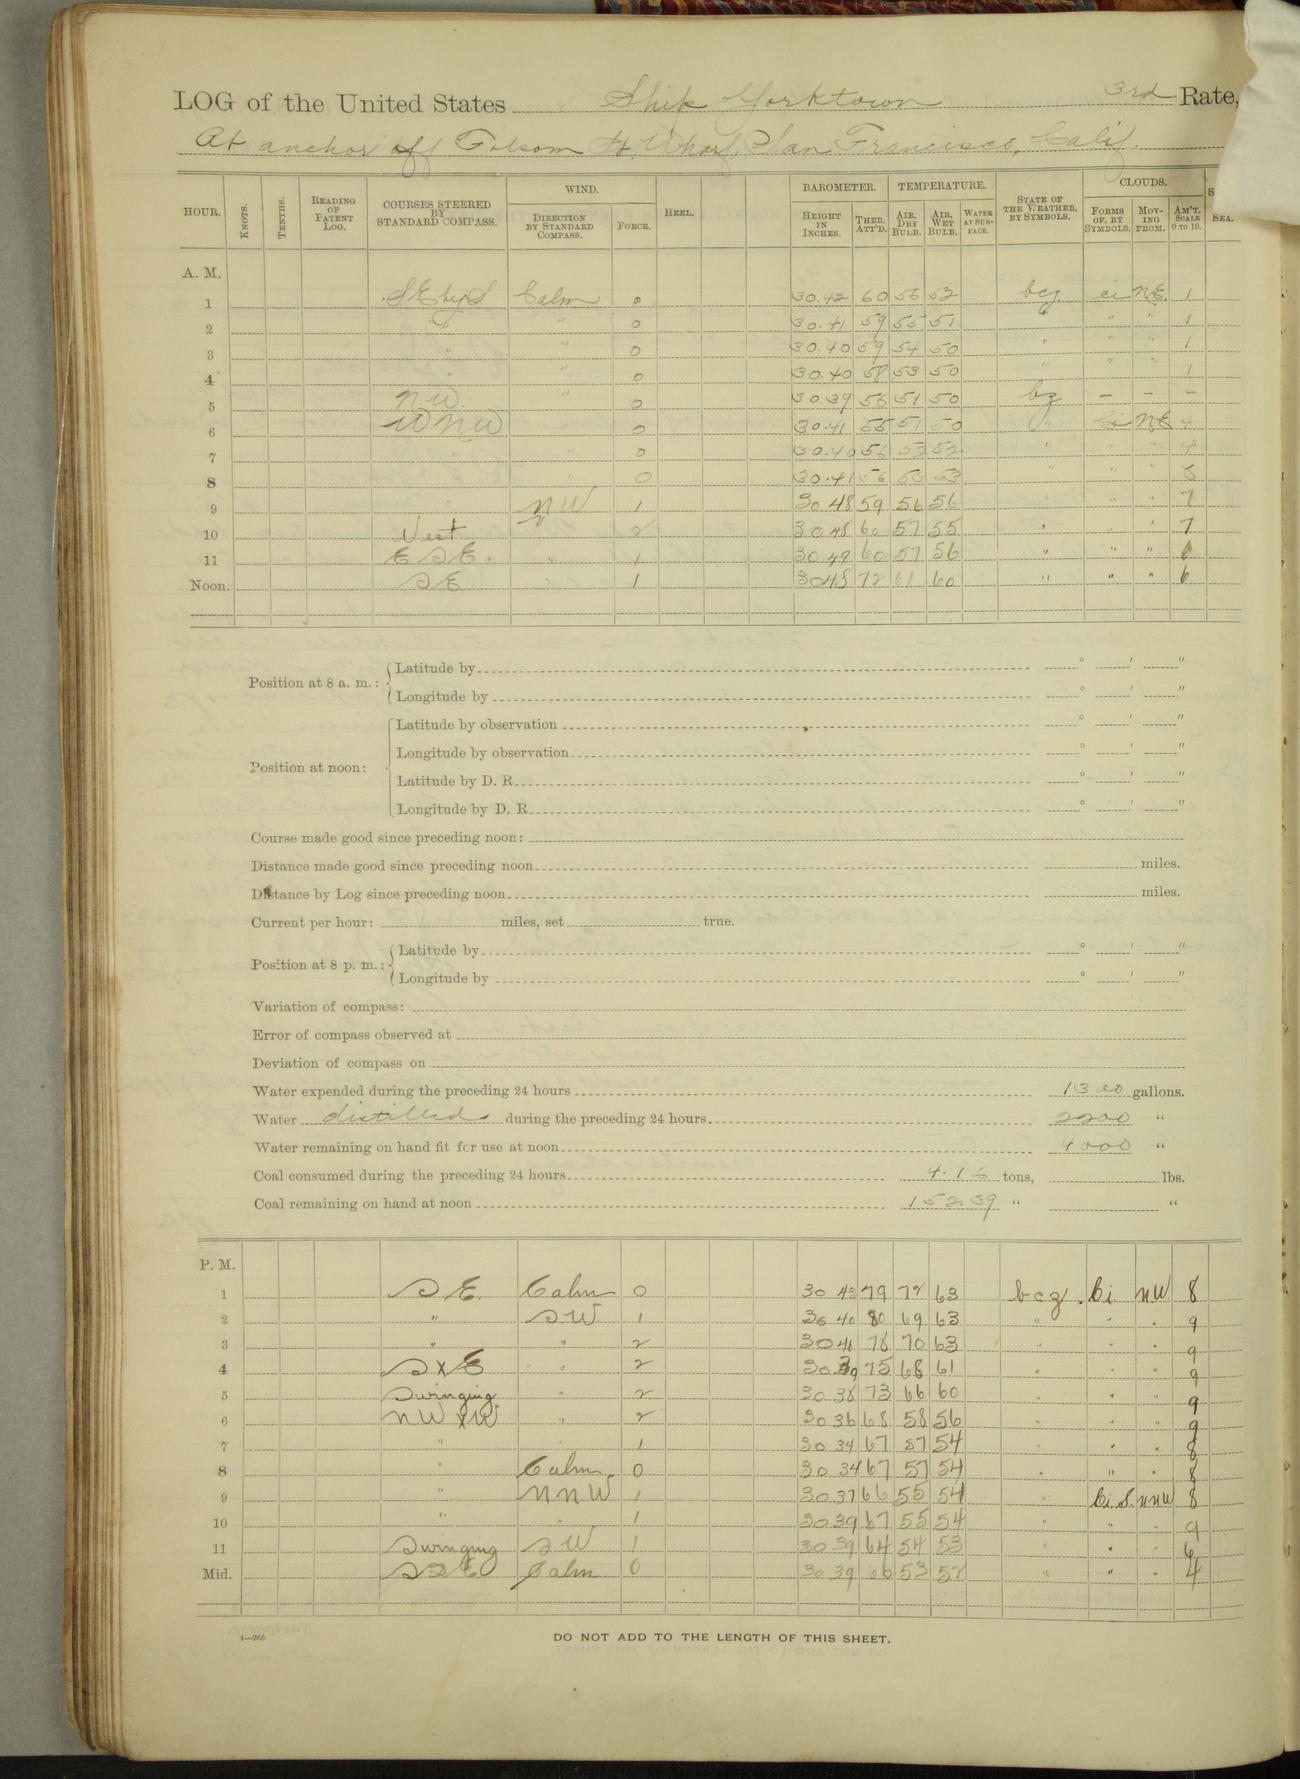 LOG of the United States Ship Yorktown 3rd Rate,
At anchor off Folsom St. Wharf, San Francisco, Calif.
HOUR. KNOTS. TENTHS. READING OF PATENT LOG. COURSES STEERED BY STANDARD COMPASS. WIND. DIRECTION BY STANDARD COMPASS. FORCE. HEEL. BAROMETER. HEIGHT IN INCHES. THER. ATT'D. TEMPERATURE. AIR, DRY BULB. AIR, WET BULB. WATER AT SURFACE. STATE OF THE WEATHER, BY SYMBOLS. CLOUDS. FORMS OF, BY SYMBOLS. MOVING FROM. AM'T. SCALE 0 TO 10. SEA.
A. M.
1 SE by S Calm 0 30.42 60 56 52 bcz ci NE 1
2 " " 0 30.41 59 55 51 " " " 1
3 " " 0 30.40 59 54 50 " " " 1
4 " " 0 30.40 58 53 50 " " " 1
5 N.W. " 0 30.39 56 51 50 bz – – –
6 WNW " 0 30.41 55 51 50 " Ci NE 4
7 " " 0 30.40 56 53 52 " " " 4
8 " 0 30.41 56 53 53 " " "
9 " NW 1 30 48 59 56 56 " " 7
10 West 2 30 48 60 57 55 " " 7
11 E S E. " 1 30 49 60 57 56 " " "
Noon. S E " 1 30 48 72 61 60 " " " 6
Position at 8 a. m.: Latitude by ° ' "
Longitude by ° ' "
Position at noon: Latitude by observation ° ' "
Longitude by observation ° ' "
Latitude by D. R. ° ' "
Longitude by D. R. ° ' "
Course made good since preceding noon:
Distance made good since preceding noon miles.
Distance by Log since preceding noon miles.
Current per hour: miles, set true.
Position at 8 p. m.: Latitude by ° ' "
Longitude by ° ' "
Variation of compass:
Error of compass observed at
Deviation of compass on
Water expended during the preceding 24 hours 1300 gallons.
Water distilled during the preceding 24 hours 2200 "
Water remaining on hand fit for use at noon 4000 "
Coal consumed during the preceding 24 hours 4.16 tons, lbs.
Coal remaining on hand at noon 152.39 " "
P. M.
1 S E. Calm 0 30 43 79 72 63 bcz. Ci NW 8
2 " SW 1 30 40 80 69 63 " " " 9
3 " " 2 30 41 78 70 63 " " " 9
4 SxE " 2 30 39 75 68 61 " " " 9
5 Swinging " 2 30 38 73 66 60 " " " 9
6 NW x W " 2 30 36 68 58 56 " " " 9
7 " " 1 30 34 67 57 54 " " " 8
8 " Calm 0 30 34 67 57 54 " " " 8
9 " NNW 1 30 37 66 55 54 " Ci.S. NNW 8
10 " " 1 30 39 67 55 54 " " " 9
11 Swinging SW 1 30 39 64 54 53 " " " 6
Mid. SSE Calm 0 30 39 66 53 52 " " " 4
4—265
DO NOT ADD TO THE LENGTH OF THIS SHEET.